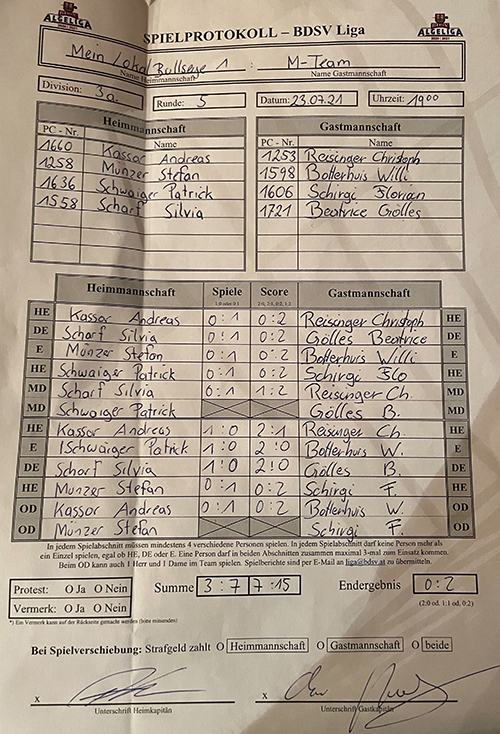 ALGELIGA
2020 / 2021
SPIELPROTOKOLL – BDSV Liga
ALGELIGA
2020 / 2021
Mein Lokal Bullseye 1 : M-Team
Name Heimmannschaft Name Gastmannschaft
Division: 3a. Runde: 5 Datum: 23.07.21 Uhrzeit: 1900
Heimmannschaft Gastmannschaft
PC - Nr. Name PC - Nr. Name
1660 Kassar Andreas 1253 Reisinger Christoph
1258 Münzer Stefan 1598 Botterhuis Willi
1636 Schwaiger Patrick 1606 Schirgi Florian
1558 Scharf Silvia 1721 Beatrice Gölles
Heimmannschaft Spiele Score Gastmannschaft
1:0 oder 0:1 2:0, 2:1, 0:2, 1:2
HE Kassar Andreas 0:1 0:2 Reisinger Christoph HE
DE Scharf Silvia 0:1 0:2 Gölles Beatrice DE
E Münzer Stefan 0:1 0:2 Botterhuis Willi E
HE Schwaiger Patrick 0:1 0:2 Schirgi Flo HE
MD Scharf Silvia 0:1 1:2 Reisinger Ch. MD
MD Schwaiger Patrick Gölles B. MD
HE Kassar Andreas 1:0 2:1 Reisinger Ch. HE
E Schwaiger Patrick 1:0 2:0 Botterhuis W. E
DE Scharf Silvia 1:0 2:0 Gölles B. DE
HE Münzer Stefan 0:1 0:2 Schirgi F. HE
OD Kassar Andreas 0:1 0:2 Botterhuis W. OD
OD Münzer Stefan Schirgi F. OD
In jedem Spielabschnitt müssen mindestens 4 verschiedene Personen spielen. In jedem Spielabschnitt darf keine Person mehr als
ein Einzel spielen, egal ob HE, DE oder E. Eine Person darf in beiden Abschnitten zusammen maximal 3-mal zum Einsatz kommen.
Beim OD kann auch 1 Herr und 1 Dame im Team spielen. Spielberichte sind per E-Mail an liga@bdsv.at zu übermitteln.
Protest: O Ja O Nein Summe 3:7 7:15 Endergebnis 0:2
Vermerk: O Ja O Nein (2:0 od. 1:1 od. 0:2)
*) Ein Vermerk kann auf der Rückseite gemacht werden (bitte umdrehen)
Bei Spielverschiebung: Strafgeld zahlt O Heimmannschaft O Gastmannschaft O beide
x x
Unterschrift Heimkapitän Unterschrift Gastkapitän